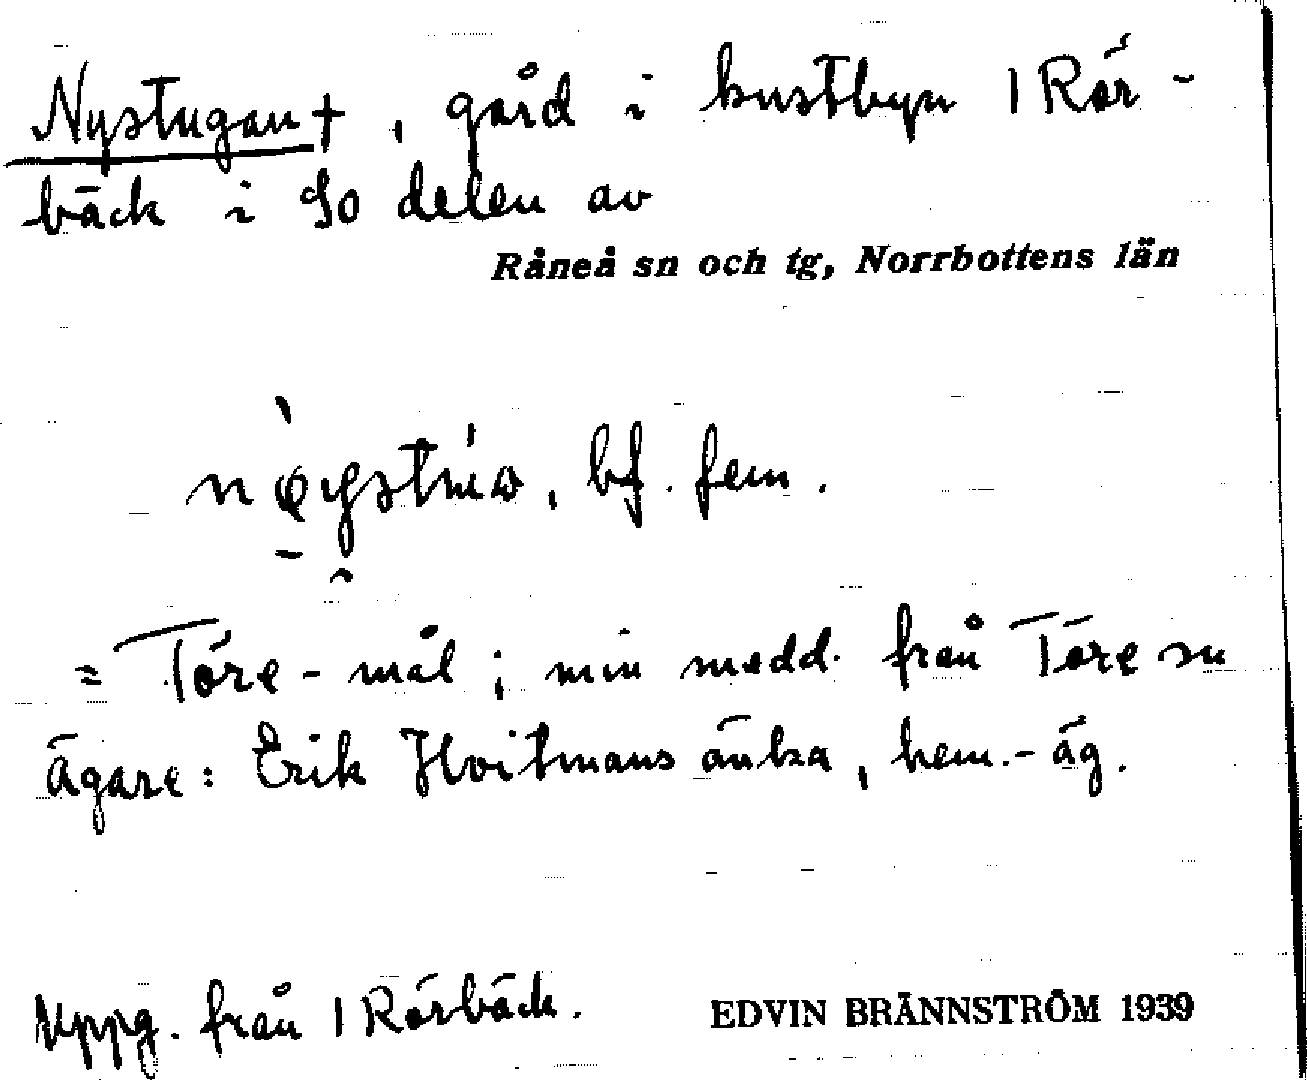 Nystugan +, gård i kustbyn 1 Rör-
bäck i So delen av
Råneå sn och tg, Norrbottens län
bf. fem.
= Töre-mål; min medd. från Töre sn
Ägare: Erik Hvitmans änka, hem.-äg.
Uppg. från 1 Rörbäck.
EDVIN BRÄNNSTRÖM 1939